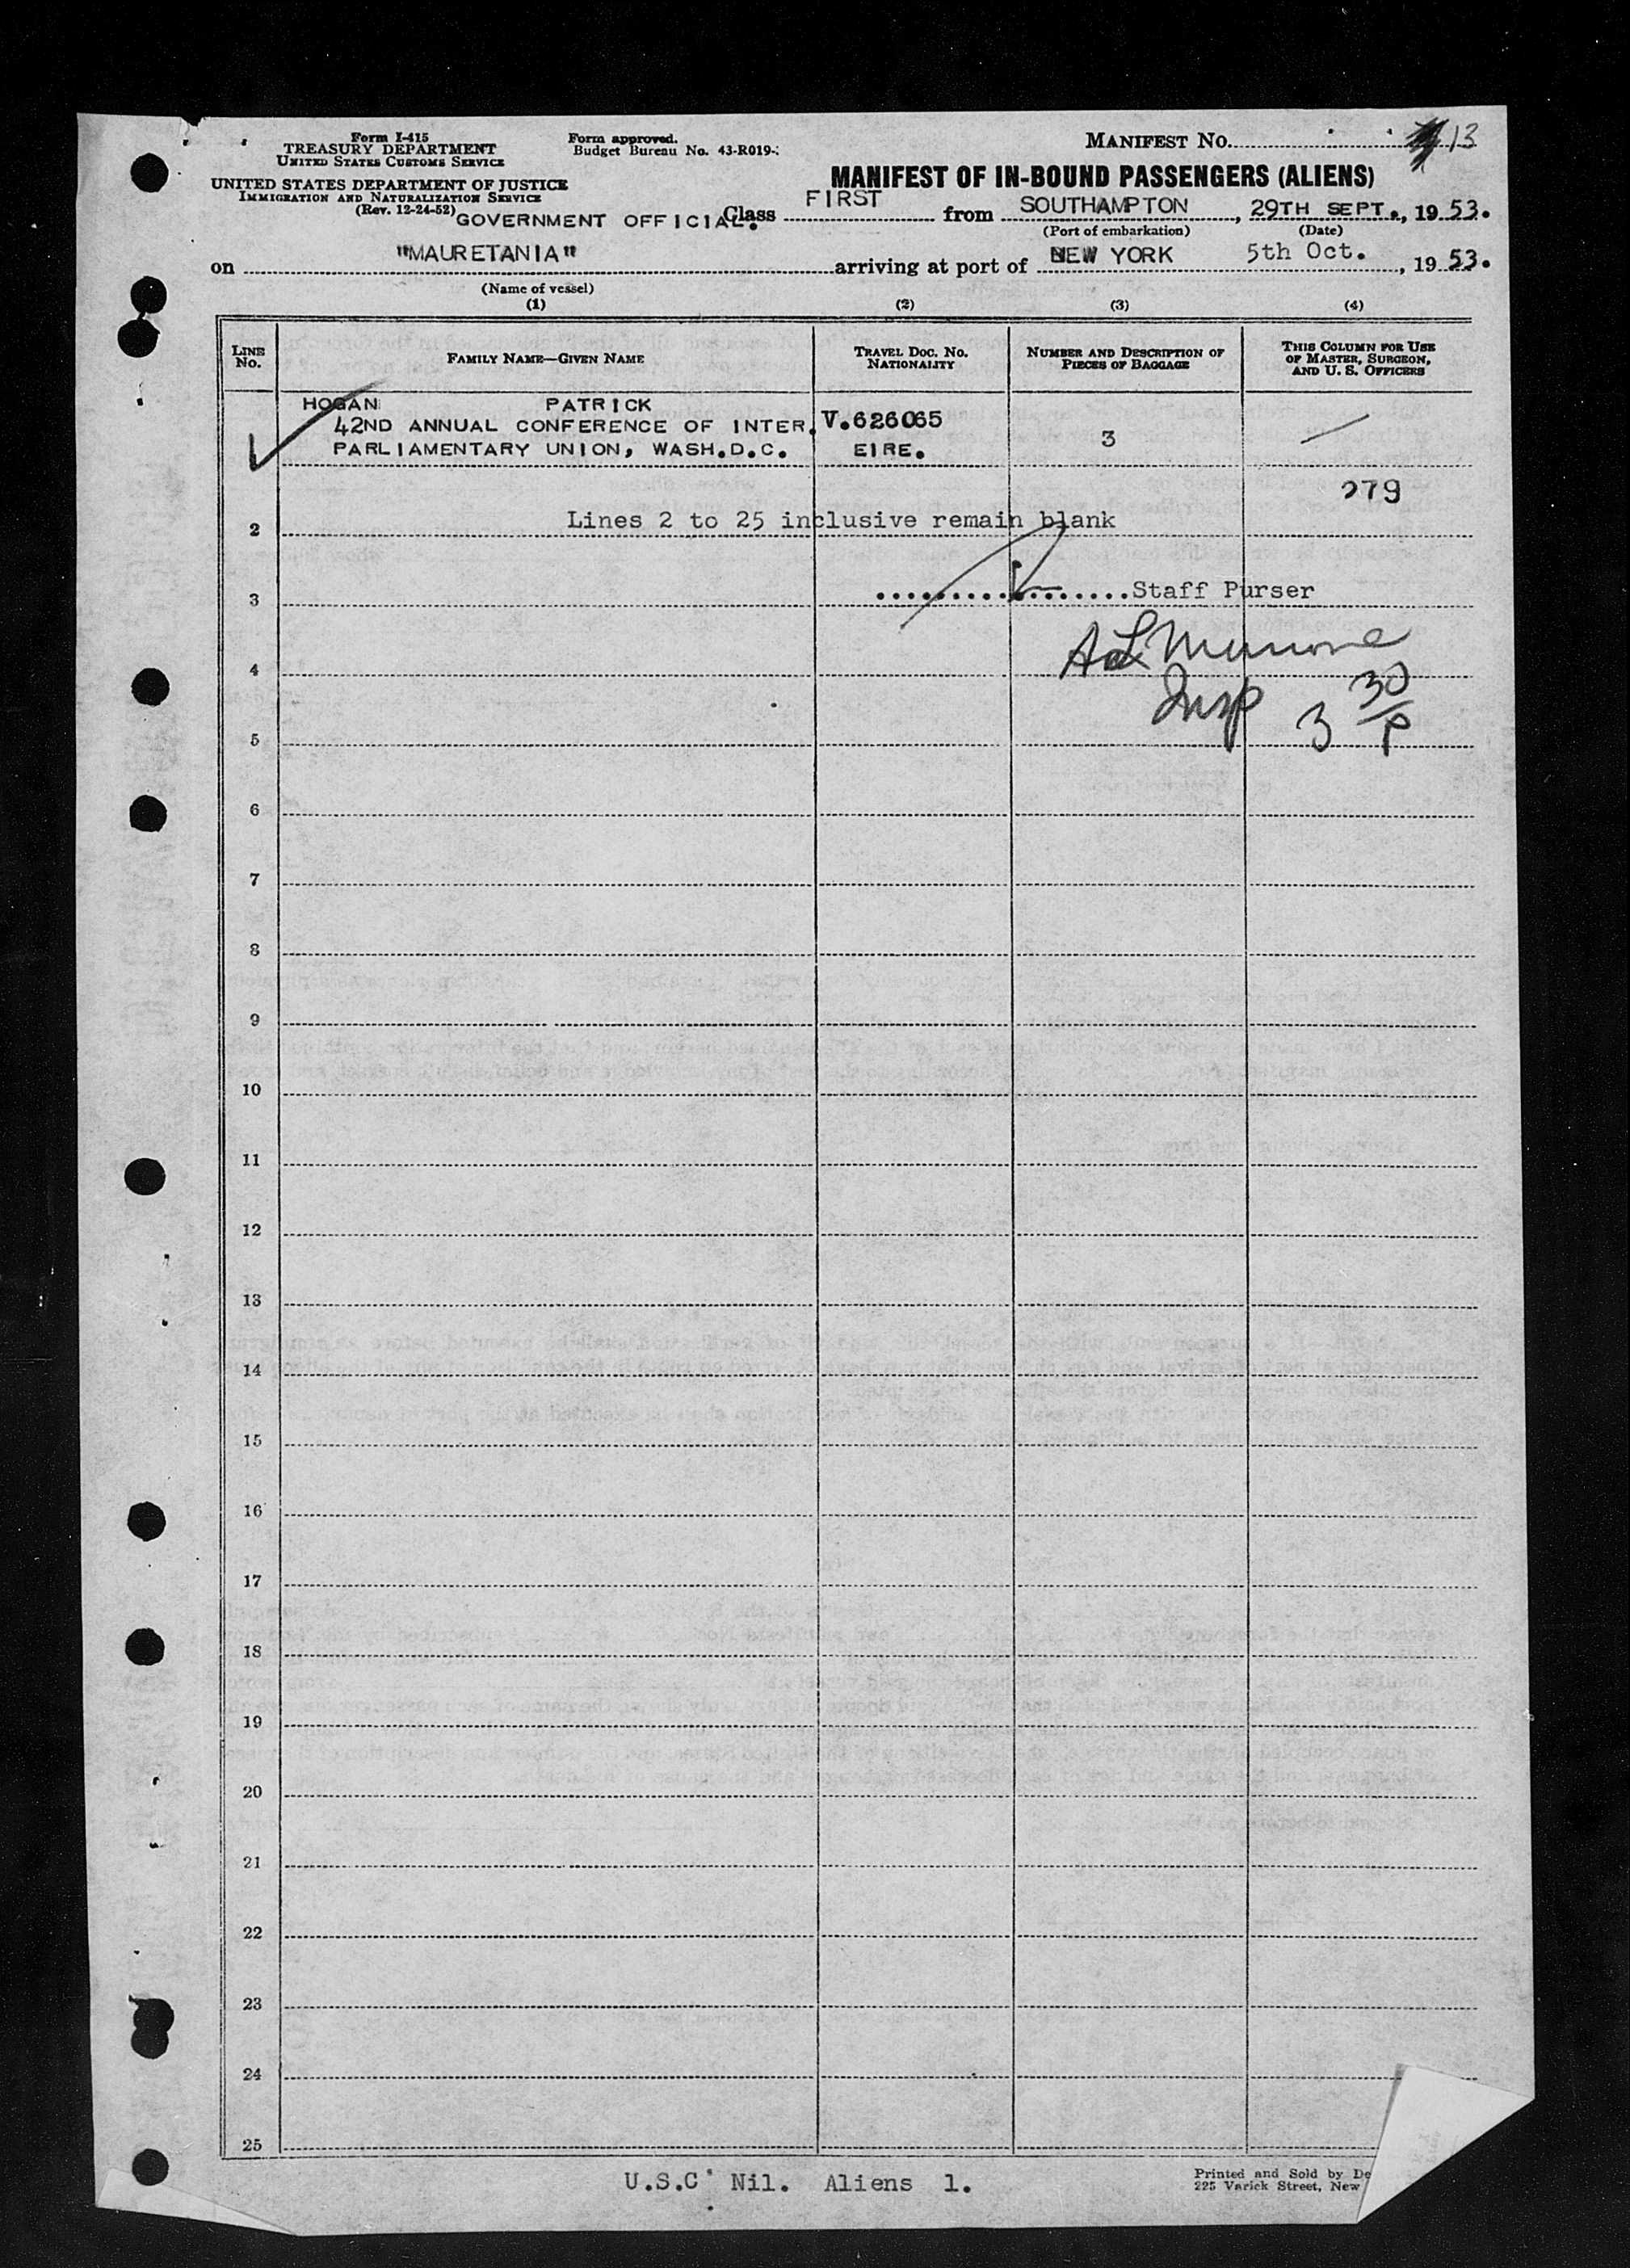 Form I-415
TREASURY DEPARTMENT
UNITED STATES CUSTOMS SERVICE
Form approved.
Budget Bureau No. 43-R019-
MANIFEST NO. 13
UNITED STATES DEPARTMENT OF JUSTICE
IMMIGRATION AND NATURALIZATION SERVICE
(Rev. 12-24-52)
MANIFEST OF IN-BOUND PASSENGERS (ALIENS)
GOVERNMENT OFFICIAL. Class FIRST from SOUTHAMPTON, 29TH SEPT., 1953.
(Port of embarkation) (Date)
on "MAURETANIA" arriving at port of NEW YORK 5th Oct., 1953.
(Name of vessel)
(1) (2) (3) (4)
LINE NO.
FAMILY NAME—GIVEN NAME
TRAVEL DOC. NO. NATIONALITY
NUMBER AND DESCRIPTION OF PIECES OF BAGGAGE
THIS COLUMN FOR USE OF MASTER, SURGEON, AND U. S. OFFICERS
HOGAN PATRICK
42ND ANNUAL CONFERENCE OF INTER. V.626065
PARLIAMENTARY UNION, WASH.D.C. EIRE. 3
279
2 Lines 2 to 25 inclusive remain blank
3 Staff Purser
4
Insp 3 30/P
5
6
7
8
9
10
11
12
13
14
15
16
17
18
19
20
21
22
23
24
25
U.S.C Nil. Aliens 1.
Printed and Sold by
225 Varick Street, New